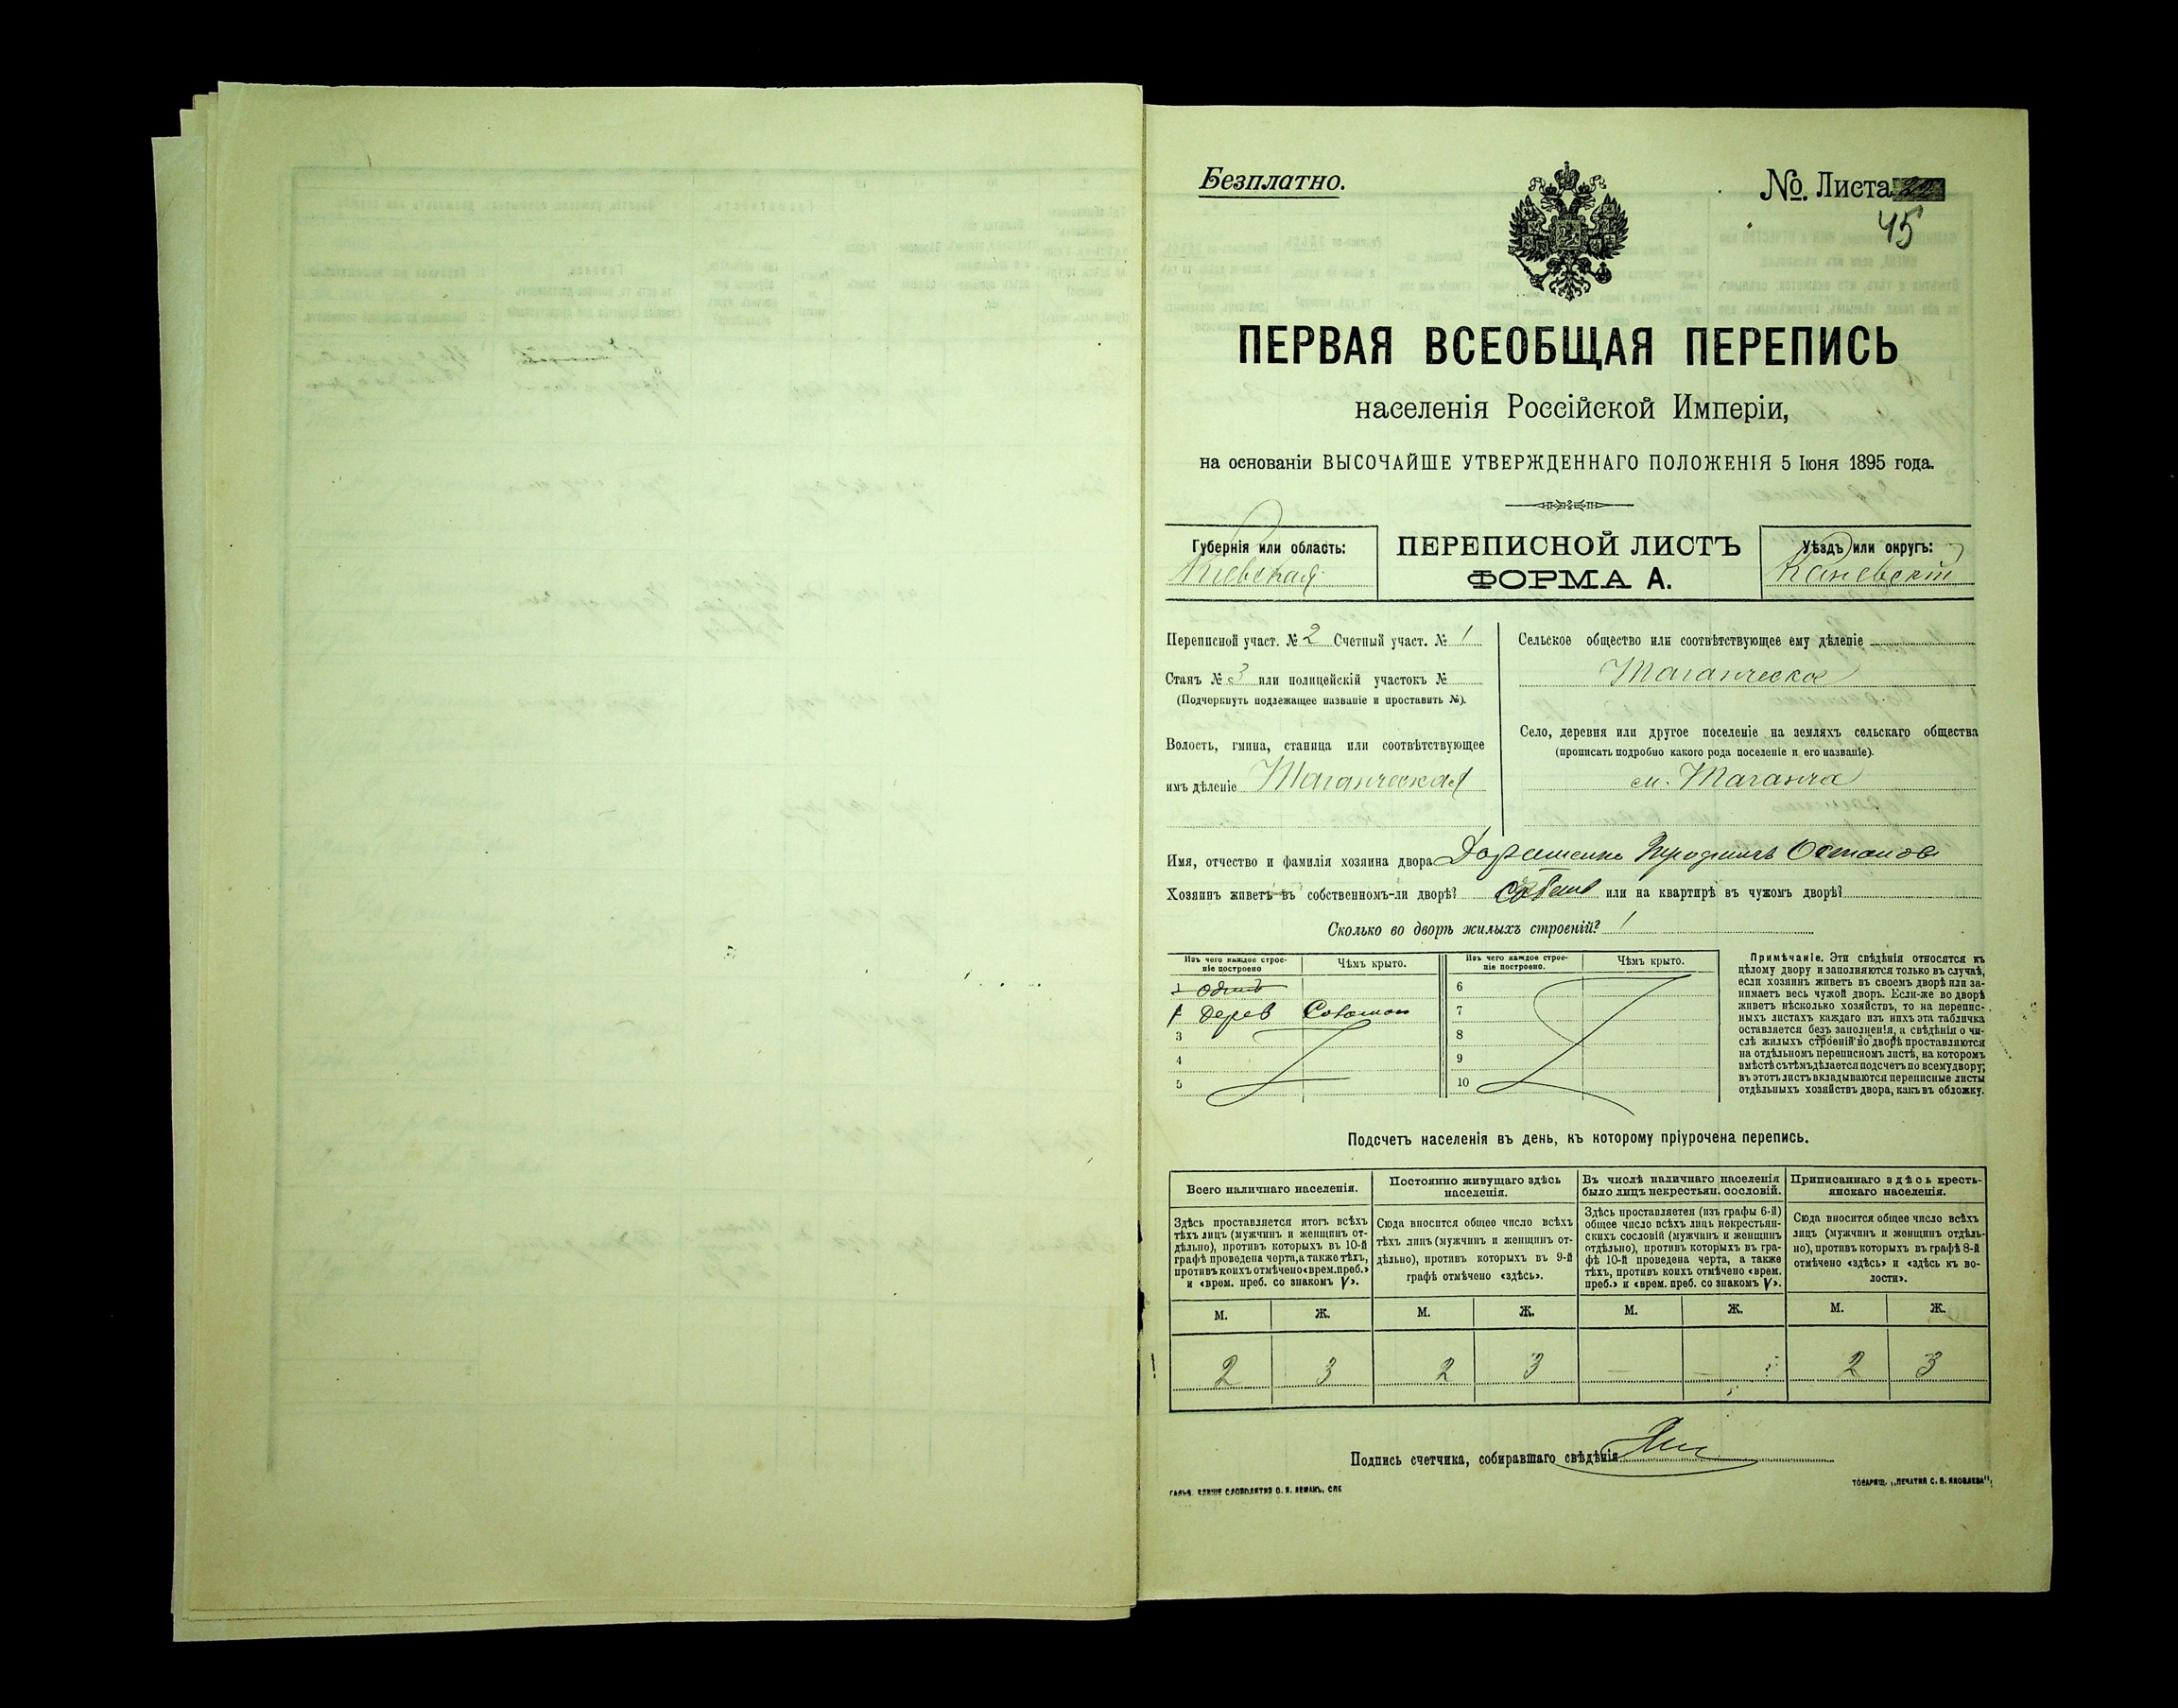 Безплатно.
№. Листа
45
ПЕРВАЯ ВСЕОБЩАЯ ПЕРЕПИСЬ
населенія Россійской Имперіи,
на основаніи ВЫСОЧАЙШЕ УТВЕРЖДЕННАГО ПОЛОЖЕНІЯ 5 Іюня 1895 года.
Губернія или область:
Кіевская
ПЕРЕПИСНОЙ ЛИСТЪ
ФОРМА А.
Уѣздъ или округъ:
Каневскій
Переписной участ. № 2 Счетный участ. № 1
Станъ № 3 или полицейскій участокъ №
(Подчеркнуть подлежащее названіе и проставить №).
Волость, гмина, станица или соотвѣтствующее
имъ дѣленіе Таганческая
Сельское общество или соотвѣтствующее ему дѣленіе
Таганческое
Село, деревня или другое поселеніе на земляхъ сельскаго общества
(прописать подробно какого рода поселеніе и его названіе).
м. Таганча
Имя, отчество и фамилія хозяина двора Дорошенко Остаповъ
Хозяинъ живетъ въ собственномъ-ли дворѣ? или на квартирѣ въ чужомъ дворѣ?
Сколько во дворѣ жилыхъ строеній? 1
Изъ чего каждое строе-
ніе построено
Чѣмъ крыто.
Изъ чего каждое строе-
ніе построено.
Чѣмъ крыто.
1
6
1 Дерев Соломой
7
3
8
4
9
5
10
Примѣчаніе. Эти свѣдѣнія относятся къ
цѣлому двору и заполняются только въ случаѣ,
если хозяинъ живетъ въ своемъ дворѣ или за-
нимаетъ весь чужой дворъ. Если-же во дворѣ
живетъ нѣсколько хозяйствъ, то на перепис-
ныхъ листахъ каждаго изъ нихъ эта табличка
оставляется безъ заполненія, а свѣдѣнія о чи-
слѣ жилыхъ строеній во дворѣ проставляются
на отдѣльномъ переписномъ листѣ, на которомъ
вмѣстѣ съ тѣмъ дѣлается подсчетъ по всему двору;
въ этотъ листъ вкладываются переписные листы
отдѣльныхъ хозяйствъ двора, какъ въ обложку.
Подсчетъ населенія въ день, къ которому пріурочена перепись.
Всего наличнаго населенія.
Постоянно живущаго здѣсь
населенія.
Въ числѣ наличнаго населенія
было лицъ некрестьян. сословій.
Приписаннаго здѣсь кресть-
янскаго населенія.
Здѣсь проставляется итогъ всѣхъ
тѣхъ лицъ (мужчинъ и женщинъ от-
дѣльно), противъ которыхъ въ 10-й
графѣ проведена черта, а также тѣхъ,
противъ коихъ отмѣчено «врем. преб.»
и «врем. преб. со знакомъ V».
Сюда вносится общее число всѣхъ
тѣхъ лицъ (мужчинъ и женщинъ от-
дѣльно), противъ которыхъ въ 9-й
графѣ отмѣчено «здѣсь».
Здѣсь проставляется (изъ графы 6-й)
общее число всѣхъ лицъ некрестьян-
скихъ сословій (мужчинъ и женщинъ
отдѣльно), противъ которыхъ въ гра-
фѣ 10-й проведена черта, а также
тѣхъ, противъ коихъ отмѣчено «врем.
преб.» и «врем. преб. со знакомъ V».
Сюда вносится общее число всѣхъ
лицъ (мужчинъ и женщинъ отдѣль-
но), противъ которыхъ въ графѣ 8-й
отмѣчено «здѣсь» и «здѣсь къ во-
лости».
М. Ж. М. Ж. М. Ж. М. Ж.
2 3 2 3 — — 2 3
Подпись счетчика, собиравшаго свѣдѣнія
ТОВАРИЩ. „ПЕЧАТНЯ С. П. ЯКОВЛЕВА“